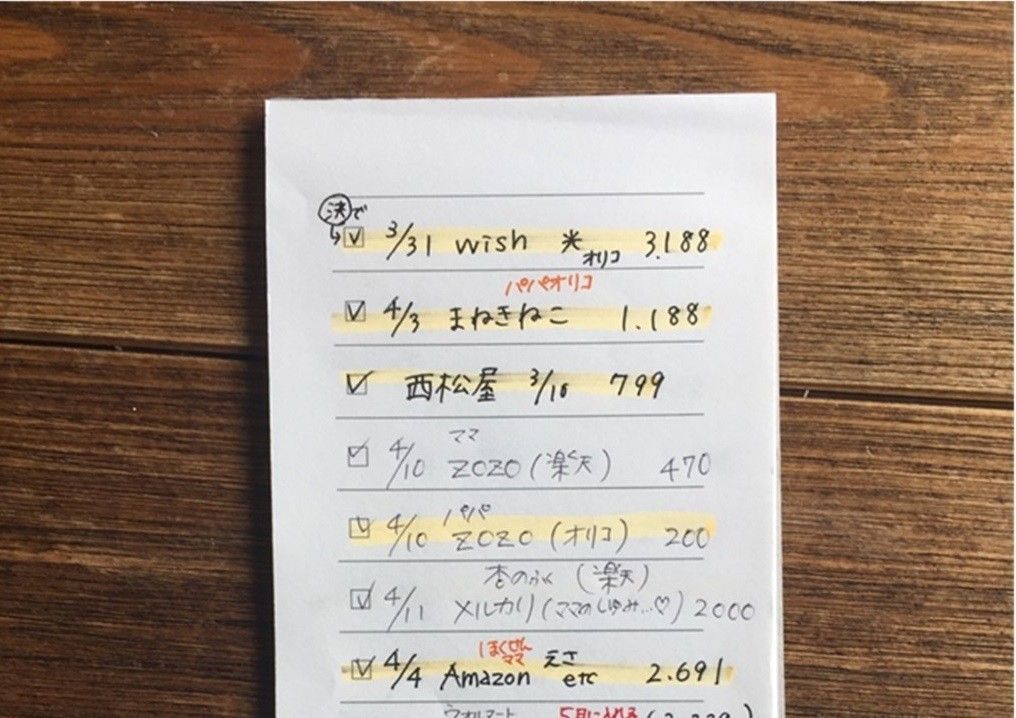 決で
↳☑ 3/31 wish 米 オリコ 3.188
パパオリコ
☑ 4/3 まねきねこ 1.188
☑ 西松屋 3/10 799
ママ
☑ 4/10 ZOZO(楽天) 470
パパ
☑ 4/10 ZOZO(オリコ) 200
杏のふく(楽天)
☑ 4/11 メルカリ(ママのしゅみ…♡) 2000
ほくぜん ママ えさ
☑ 4/4 Amazon etc 2.691